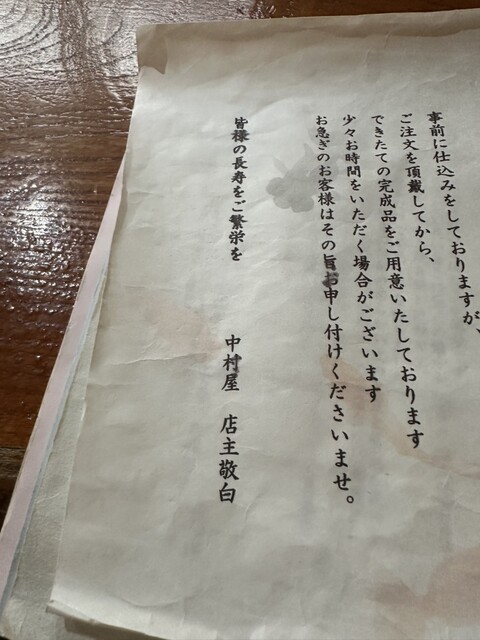 事前に仕込みをしておりますが、
ご注文を頂戴してから、
できたての完成品をご用意いたしております
少々お時間をいただく場合がございます
お急ぎのお客様はその旨お申し付けくださいませ。
皆様の長寿をご繁栄を
中村屋 店主敬白